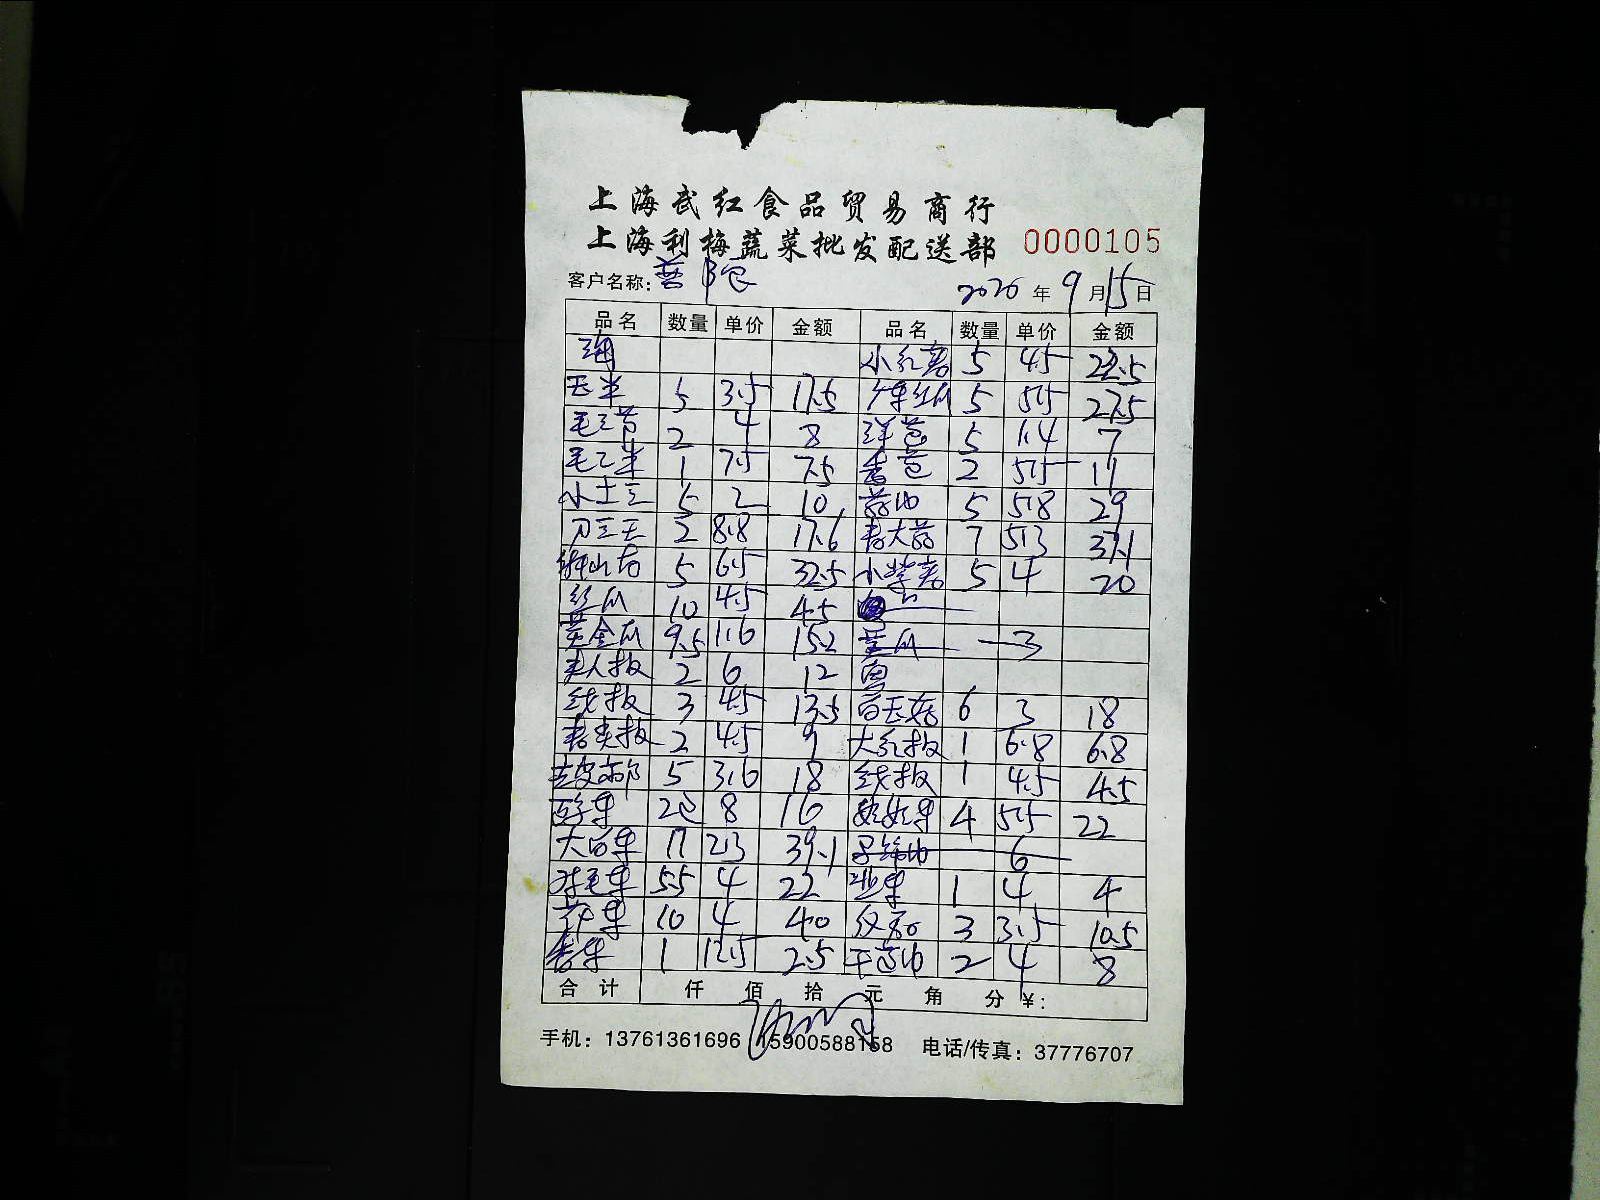 上海武红食品贸易商行
上海利梅蔬菜批发配送部 0000105
客户名称: 2020年9月15日
品名 数量 单价 金额 品名 数量 单价 金额
海 小红 5 4.5 22.5
玉米 5 3.5 17.5 5 5.5 27.5
毛豆节 2 4 8 洋葱 5 1.4 7
毛豆米 1 7.5 7.5 香葱 2 5.5 11
小土豆 5 2 10 蒜肉 5 5.8 29
刀豆王 2 8.8 17.6 青大蒜 7 5.3 37.1
铁山药 5 6.5 32.5 小紫 5 4 20
丝瓜 10 4.5 45
黄金瓜 9.5 1.6 15.2 黄瓜 3
美人椒 2 6 12 奥
线椒 3 4.5 13.5 白玉菇 6 3 18
青尖椒 2 4.5 9 大红椒 1 6.8 6.8
5 3.6 18 线椒 1 4.5 4.5
西芹 2 8 16 娃娃菜 4 5.5 22
大白菜 17 2.3 39.1 6
5.5 4 22 1 4 4
10 4 40 3 3.5 10.5
香菜 1 12.5 2.5 2 4 8
合计 仟 佰 拾 元 角 分 ¥:
手机: 13761361696 15900588158 电话/传真: 37776707